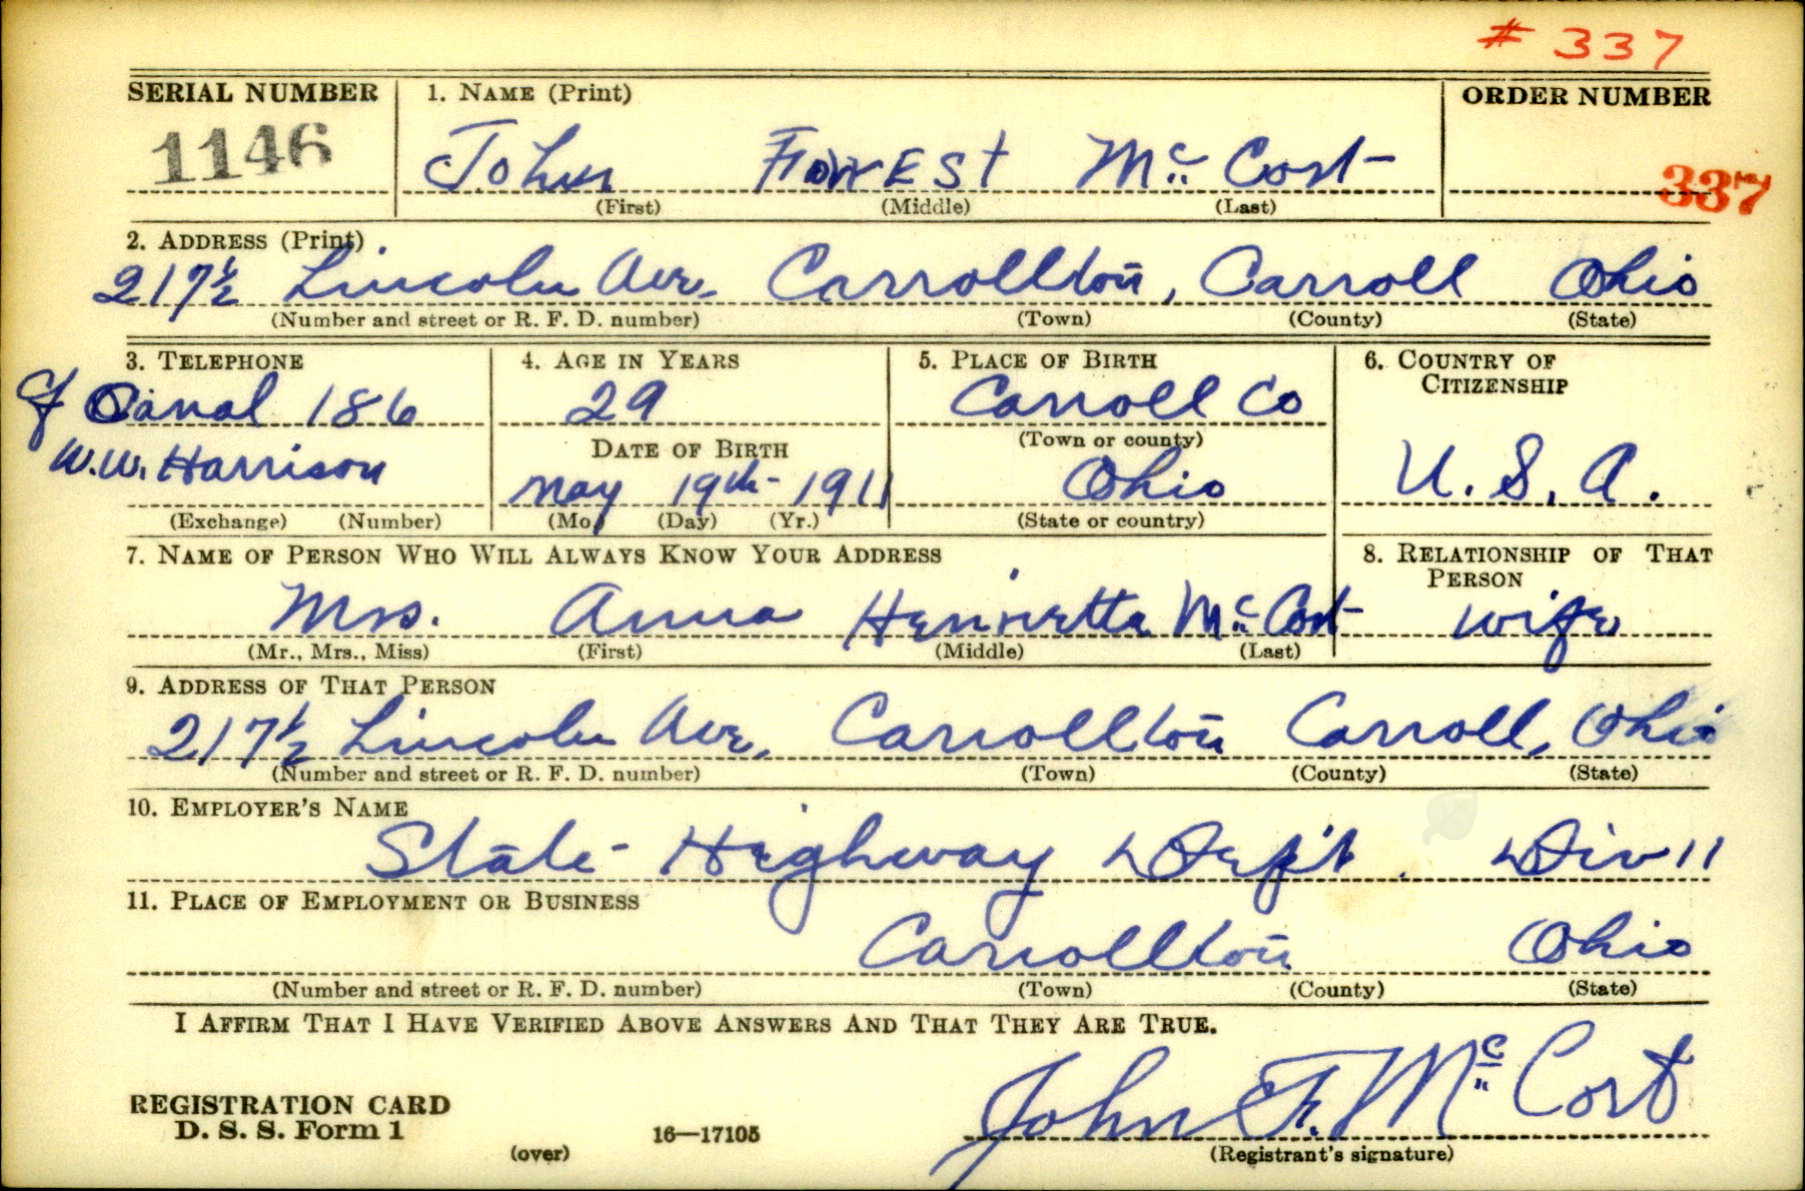 # 337
SERIAL NUMBER 1. NAME (Print) ORDER NUMBER
1146 John Forrest McCort 337
(First) (Middle) (Last)
2. ADDRESS (Print)
217½ Lincoln Ave. Carrollton, Carroll Ohio
(Number and street or R. F. D. number) (Town) (County) (State)
3. TELEPHONE 4. AGE IN YEARS 5. PLACE OF BIRTH 6. COUNTRY OF CITIZENSHIP
Canal 186 29 Carroll Co
(Town or county)
DATE OF BIRTH
W.W. Harrison May 19th - 1911 Ohio U.S.A.
(Exchange) (Number) (Mo.) (Day) (Yr.) (State or country)
7. NAME OF PERSON WHO WILL ALWAYS KNOW YOUR ADDRESS 8. RELATIONSHIP OF THAT PERSON
Mrs. Anna Henrietta McCort wife
(Mr., Mrs., Miss) (First) (Middle) (Last)
9. ADDRESS OF THAT PERSON
217½ Lincoln Ave. Carrollton Carroll, Ohio
(Number and street or R. F. D. number) (Town) (County) (State)
10. EMPLOYER'S NAME
State Highway Dep't. Div 11
11. PLACE OF EMPLOYMENT OR BUSINESS
Carrollton Ohio
(Number and street or R. F. D. number) (Town) (County) (State)
I AFFIRM THAT I HAVE VERIFIED ABOVE ANSWERS AND THAT THEY ARE TRUE.
REGISTRATION CARD
D. S. S. Form 1 16—17105 John F. McCort
(over) (Registrant's signature)